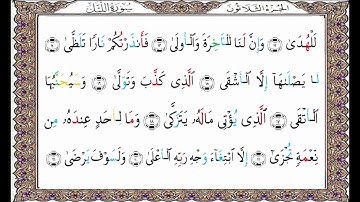 الجزء الثلاثون سورة الليل
لَلْهُدَىٰ ۝ وَإِنَّ لَنَا لَلْآخِرَةَ وَالْأُولَىٰ ۝ فَأَنذَرْتُكُمْ نَارًا تَلَظَّىٰ ۝
لَا يَصْلَاهَا إِلَّا الْأَشْقَى ۝ الَّذِي كَذَّبَ وَتَوَلَّىٰ ۝ وَسَيُجَنَّبُهَا
الْأَتْقَى ۝ الَّذِي يُؤْتِي مَالَهُ يَتَزَكَّىٰ ۝ وَمَا لِأَحَدٍ عِندَهُ مِن
نِّعْمَةٍ تُجْزَىٰ ۝ إِلَّا ابْتِغَاءَ وَجْهِ رَبِّهِ الْأَعْلَىٰ ۝ وَلَسَوْفَ يَرْضَىٰ ۝